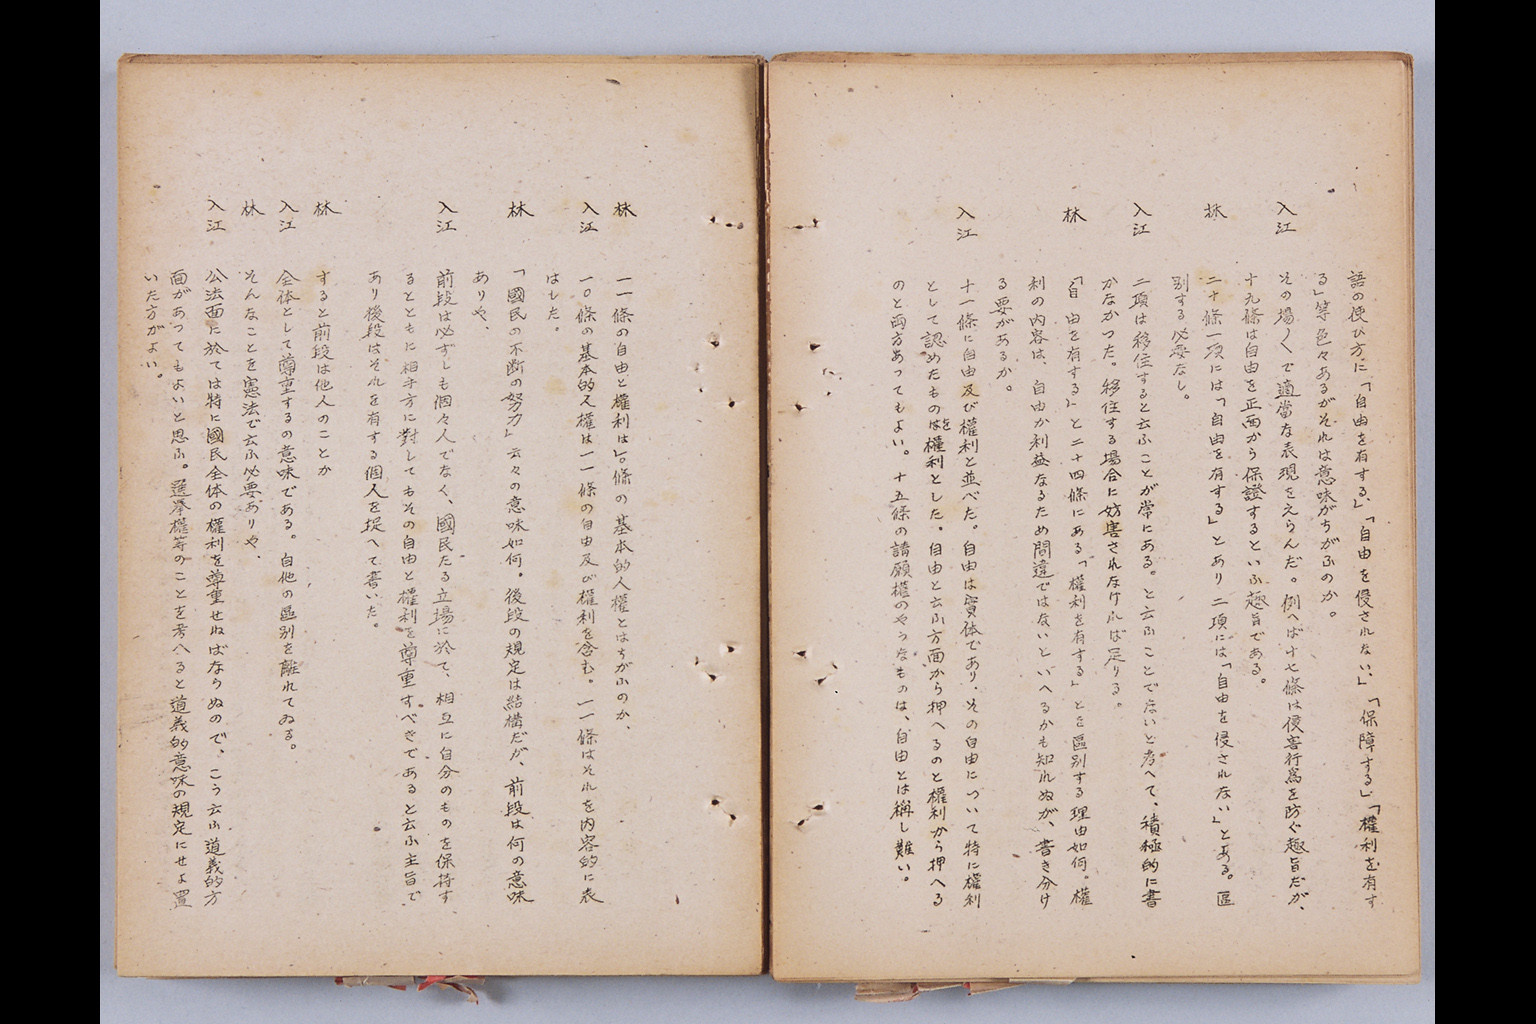 語の使ひ方に「自由を有する」、「自由を侵されない」、「保障する」「權利を有す
る」等色々あるがそれは意味がちがふのか。
入江 その場〱で適當な表現をえらんだ。例へば十七條は侵害行爲を防ぐ趣旨だが、
十九條は自由を正面から保證するといふ趣旨である。
林 二十條一項には「自由を有する」とあり二項には「自由を侵されない」とある。區
別する必要なし。
入江 二項は移住すると云ふことが常にある。と云ふことでないと考へて、積極的に書
かなかつた。移住する場合に妨害されなければ足りる。
林 「自由を有する」と二十四條にある「權利を有する」とを區別する理由如何。權
利の内容は、自由か利益なるため間違ではないといへるかも知れぬが、書き分け
る要があるか。
入江 十一條に自由及び權利と並べた。自由は實体であり、その自由について特に權利
として認めたものを權利とした。自由と云ふ方面から押へるのと權利から押へる
のと両方あつてもよい。十五條の請願權のやうなものは、自由とは稱し難い。
林 一一條の自由と權利は一〇條の基本的人權とはちがふのか、
入江 一〇條の基本的人權は一一條の自由及び權利を含む。一一條はそれを内容的に表
はした。
林 「國民の不断の努力」云々の意味如何。後段の規定は結構だが、前段は何の意味
ありや、
入江 前段は必ずしも個々人でなく、國民たる立場に於て、相互に自分のものを保持す
るとともに相手方に對してもその自由と權利を尊重すべきであると云ふ主旨で
あり後段はそれを有する個人を捉へて書いた。
林 すると前段は他人のことか
入江 全体として尊重するの意味である。自他の區別を離れてゐる。
林 そんなことを憲法で云ふ必要ありや、
入江 公法面に於ては特に國民全体の權利を尊重せねばならぬので、こう云ふ道義的方
面があつてもよいと思ふ。選挙權等のことを考へると道義的意味の規定にせよ置
いた方がよい。